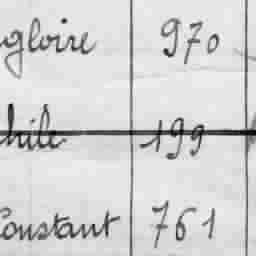 gloire 970
hile 199
Constant 761